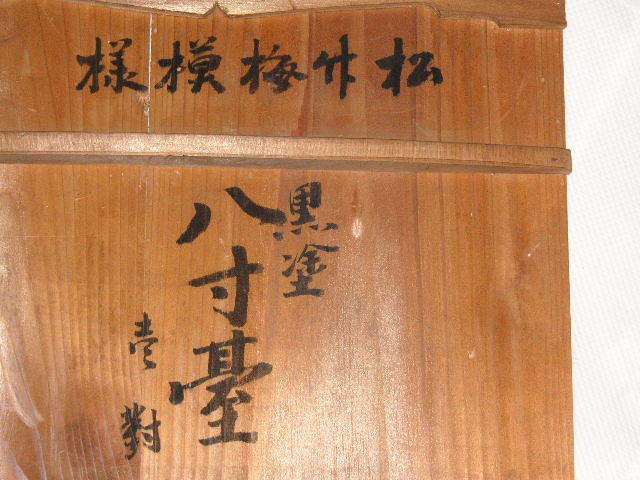 松竹梅模様
黒塗
八寸臺
壱對